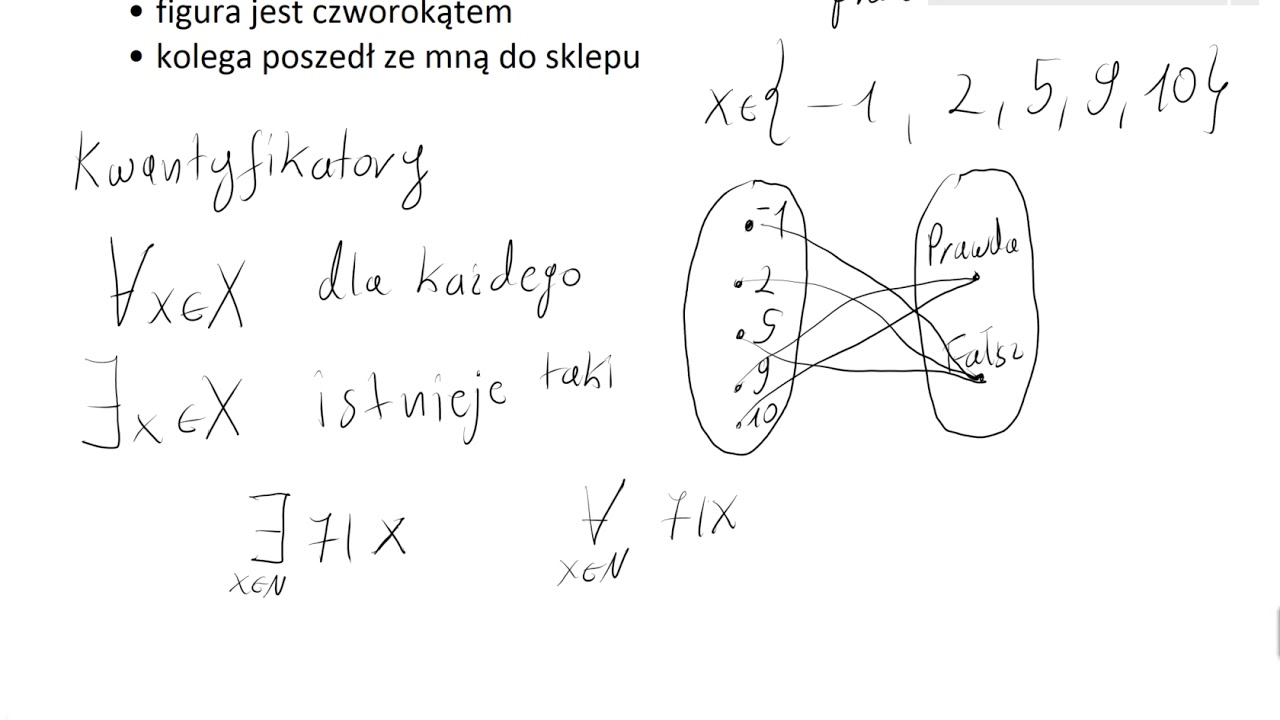 • figura jest czworokątem
• kolega poszedł ze mną do sklepu
x∈{-1, 2, 5, 9, 10}
Kwantyfikatory
∀x∈X dla każdego
∃x∈X istnieje taki
-1
2
5
9
10
Prawda
Fałsz
∃ 7|x
x∈N
∀ 7|x
x∈N